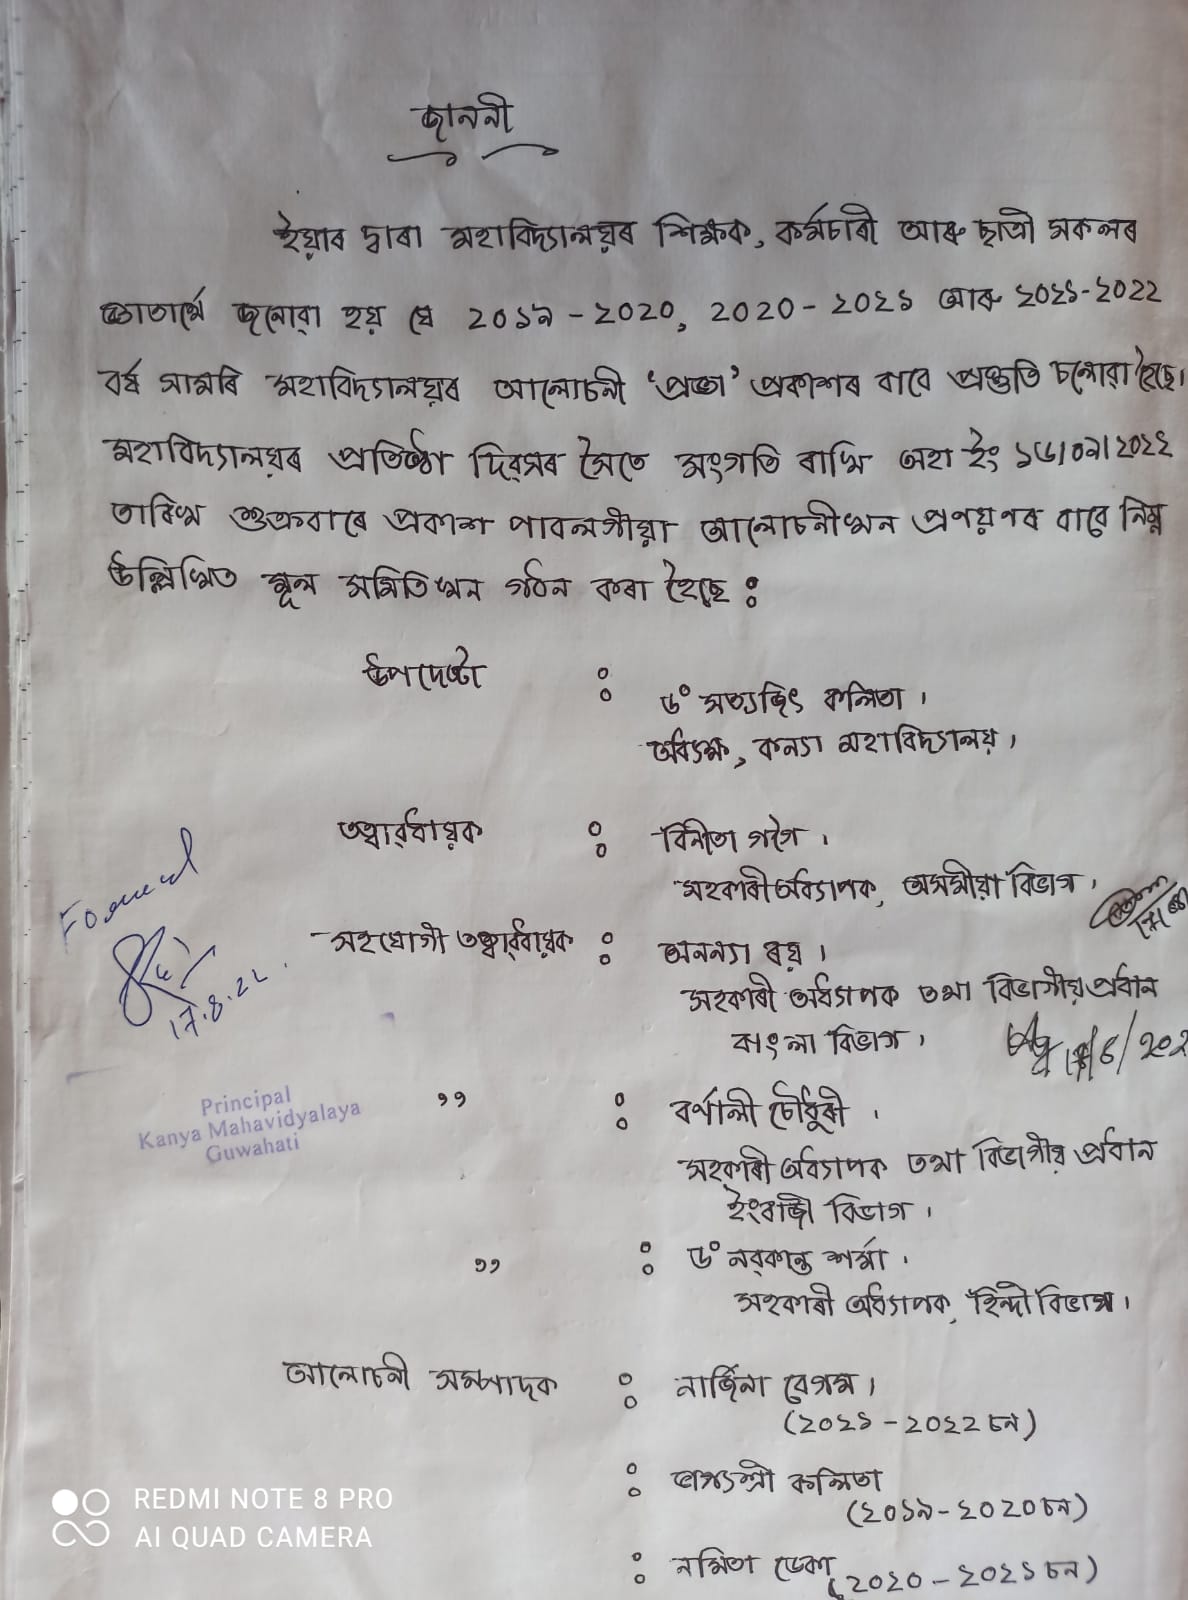 জাননী
ইয়াৰ দ্বাৰা মহাবিদ্যালয়ৰ শিক্ষক, কৰ্মচাৰী আৰু ছাত্ৰী সকলৰ
জ্ঞাতাৰ্থে জনোৱা হয় যে ২০১৯-২০২০, ২০২০-২০২১ আৰু ২০২১-২০২২
বৰ্ষ সামৰি মহাবিদ্যালয়ৰ আলোচনী 'প্ৰভা' প্ৰকাশৰ বাবে প্ৰস্তুতি চলোৱা হৈছে।
মহাবিদ্যালয়ৰ প্ৰতিষ্ঠা দিৱসৰ সৈতে সংগতি ৰাখি অহা ইং ১৬/০৯/২০২২
তাৰিখ শুক্ৰবাৰে প্ৰকাশ পাবলগীয়া আলোচনীখন প্ৰণয়ণৰ বাবে নিম্ন
উল্লিখিত মূল সমিতিখন গঠন কৰা হৈছে :
উপদেষ্টা : ড° সত্যজিৎ কলিতা।
অধ্যক্ষ, কন্যা মহাবিদ্যালয়।
তত্বাৱধায়ক : বিনীতা গগৈ।
সহকাৰী অধ্যাপক, অসমীয়া বিভাগ।
সহযোগী তত্বাৱধায়ক : অনন্যা ৰয়।
সহকাৰী অধ্যাপক তথা বিভাগীয় প্ৰধান
বাংলা বিভাগ।
17.8.22
Principal
Kanya Mahavidyalaya
Guwahati
,, : বৰ্ণালী চৌধুৰী।
সহকাৰী অধ্যাপক তথা বিভাগীয় প্ৰধান
ইংৰাজী বিভাগ।
,, : ড° নৱকান্ত শৰ্মা।
সহকাৰী অধ্যাপক, হিন্দী বিভাগ।
আলোচনী সম্পাদক : নাৰ্জিনা বেগম।
(২০২১-২০২২ চন)
: ভাগ্যশ্ৰী কলিতা
(২০১৯-২০২০ চন)
: নমিতা ডেকা
(২০২০-২০২১ চন)
REDMI NOTE 8 PRO
AI QUAD CAMERA